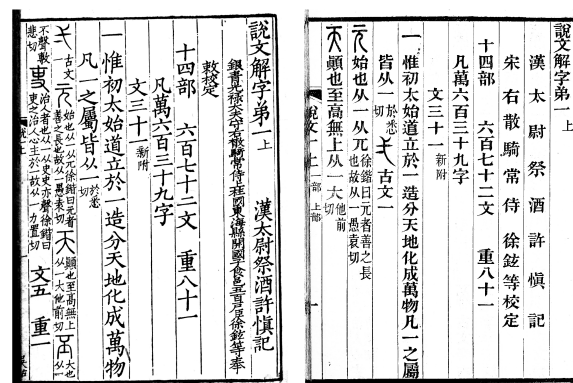 說文解字弟一上
漢太尉祭酒許慎記
宋右散騎常侍徐鉉等校定
十四部 六百七十二文 重八十一
凡萬六百三十九字
文三十一新附
一惟初太始道立於一造分天地化成萬物凡一之屬
皆从一於悉切 弌古文一
元始也从一从兀徐鍇曰元者善之長也故从一愚袁切
天顚也至高無上从一大他前切
說文一上 一部 上部 一
說文解字弟一上 漢太尉祭酒許慎記
銀青光祿大夫守右散騎常侍上柱國東海縣開國子食邑五百戶臣徐鉉等奉
敕校定
十四部 六百七十二文 重八十一
凡萬六百三十九字
文三十一新附
一惟初太始道立於一造分天地化成萬物
凡一之屬皆从一於悉切
弌古文一 元始也从一从兀徐鍇曰元者善之長也故从一愚袁切 天顚也至高無上从一大他前切 丕大也从一
不聲敷悲切 吏治人者也从一从史史亦聲徐鍇曰吏之治人心主於一故从一力置切 文五 重一